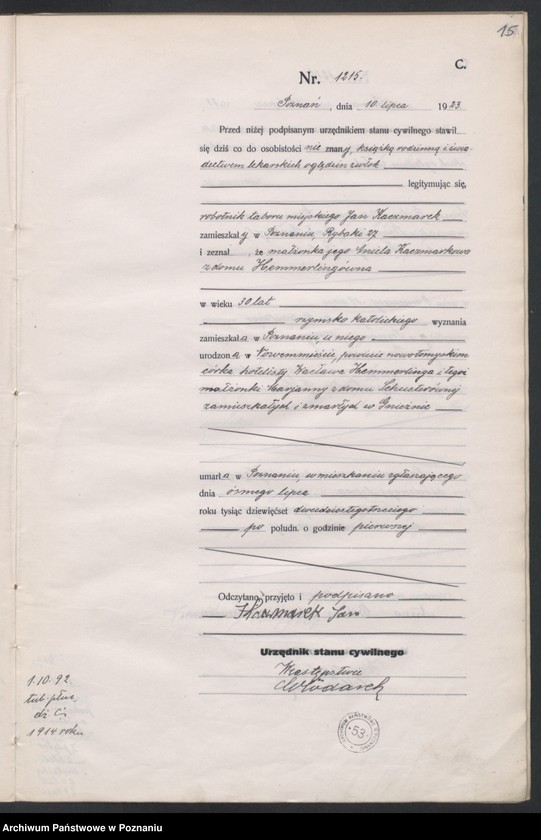 15
C.
Nr. 1215.
Poznań, dnia 10 lipca 1923
Przed niżej podpisanym urzędnikiem stanu cywilnego stawił
się dziś co do osobistości nie znany, książką rodzinną i świa-
dectwem lekarskich oględzin zwłok
legitymując się,
robotnik taboru miejskiego Jan Kaczmarek
zamieszkały w Poznaniu, Rybaki 27
i zeznał, że małżonka jego Aniela Kaczmarkowa
z domu Hemmerlingówna
w wieku 30 lat
rzymsko katolickiego wyznania
zamieszkała w Poznaniu, u niego
urodzona w Nowemmieście, powiecie nowotomyskim
córka hotelisty Wacława Hemmerlinga i tegoż
małżonki Marjanny z domu Schusterówny
zamieszkałych i zmarłych w Gnieźnie
umarła w Poznaniu, w mieszkaniu zgłaszającego
dnia ósmego lipca
roku tysiąc dziewięćset dwudziestegotrzeciego
po połudn. o godzinie pierwszej
Odczytano, przyjęto i podpisano
Kaczmarek Jan
Urzędnik stanu cywilnego
W zastępstwie
Włodarek
1.10.92.
1914 roku
53
Archiwum Państwowe w Poznaniu